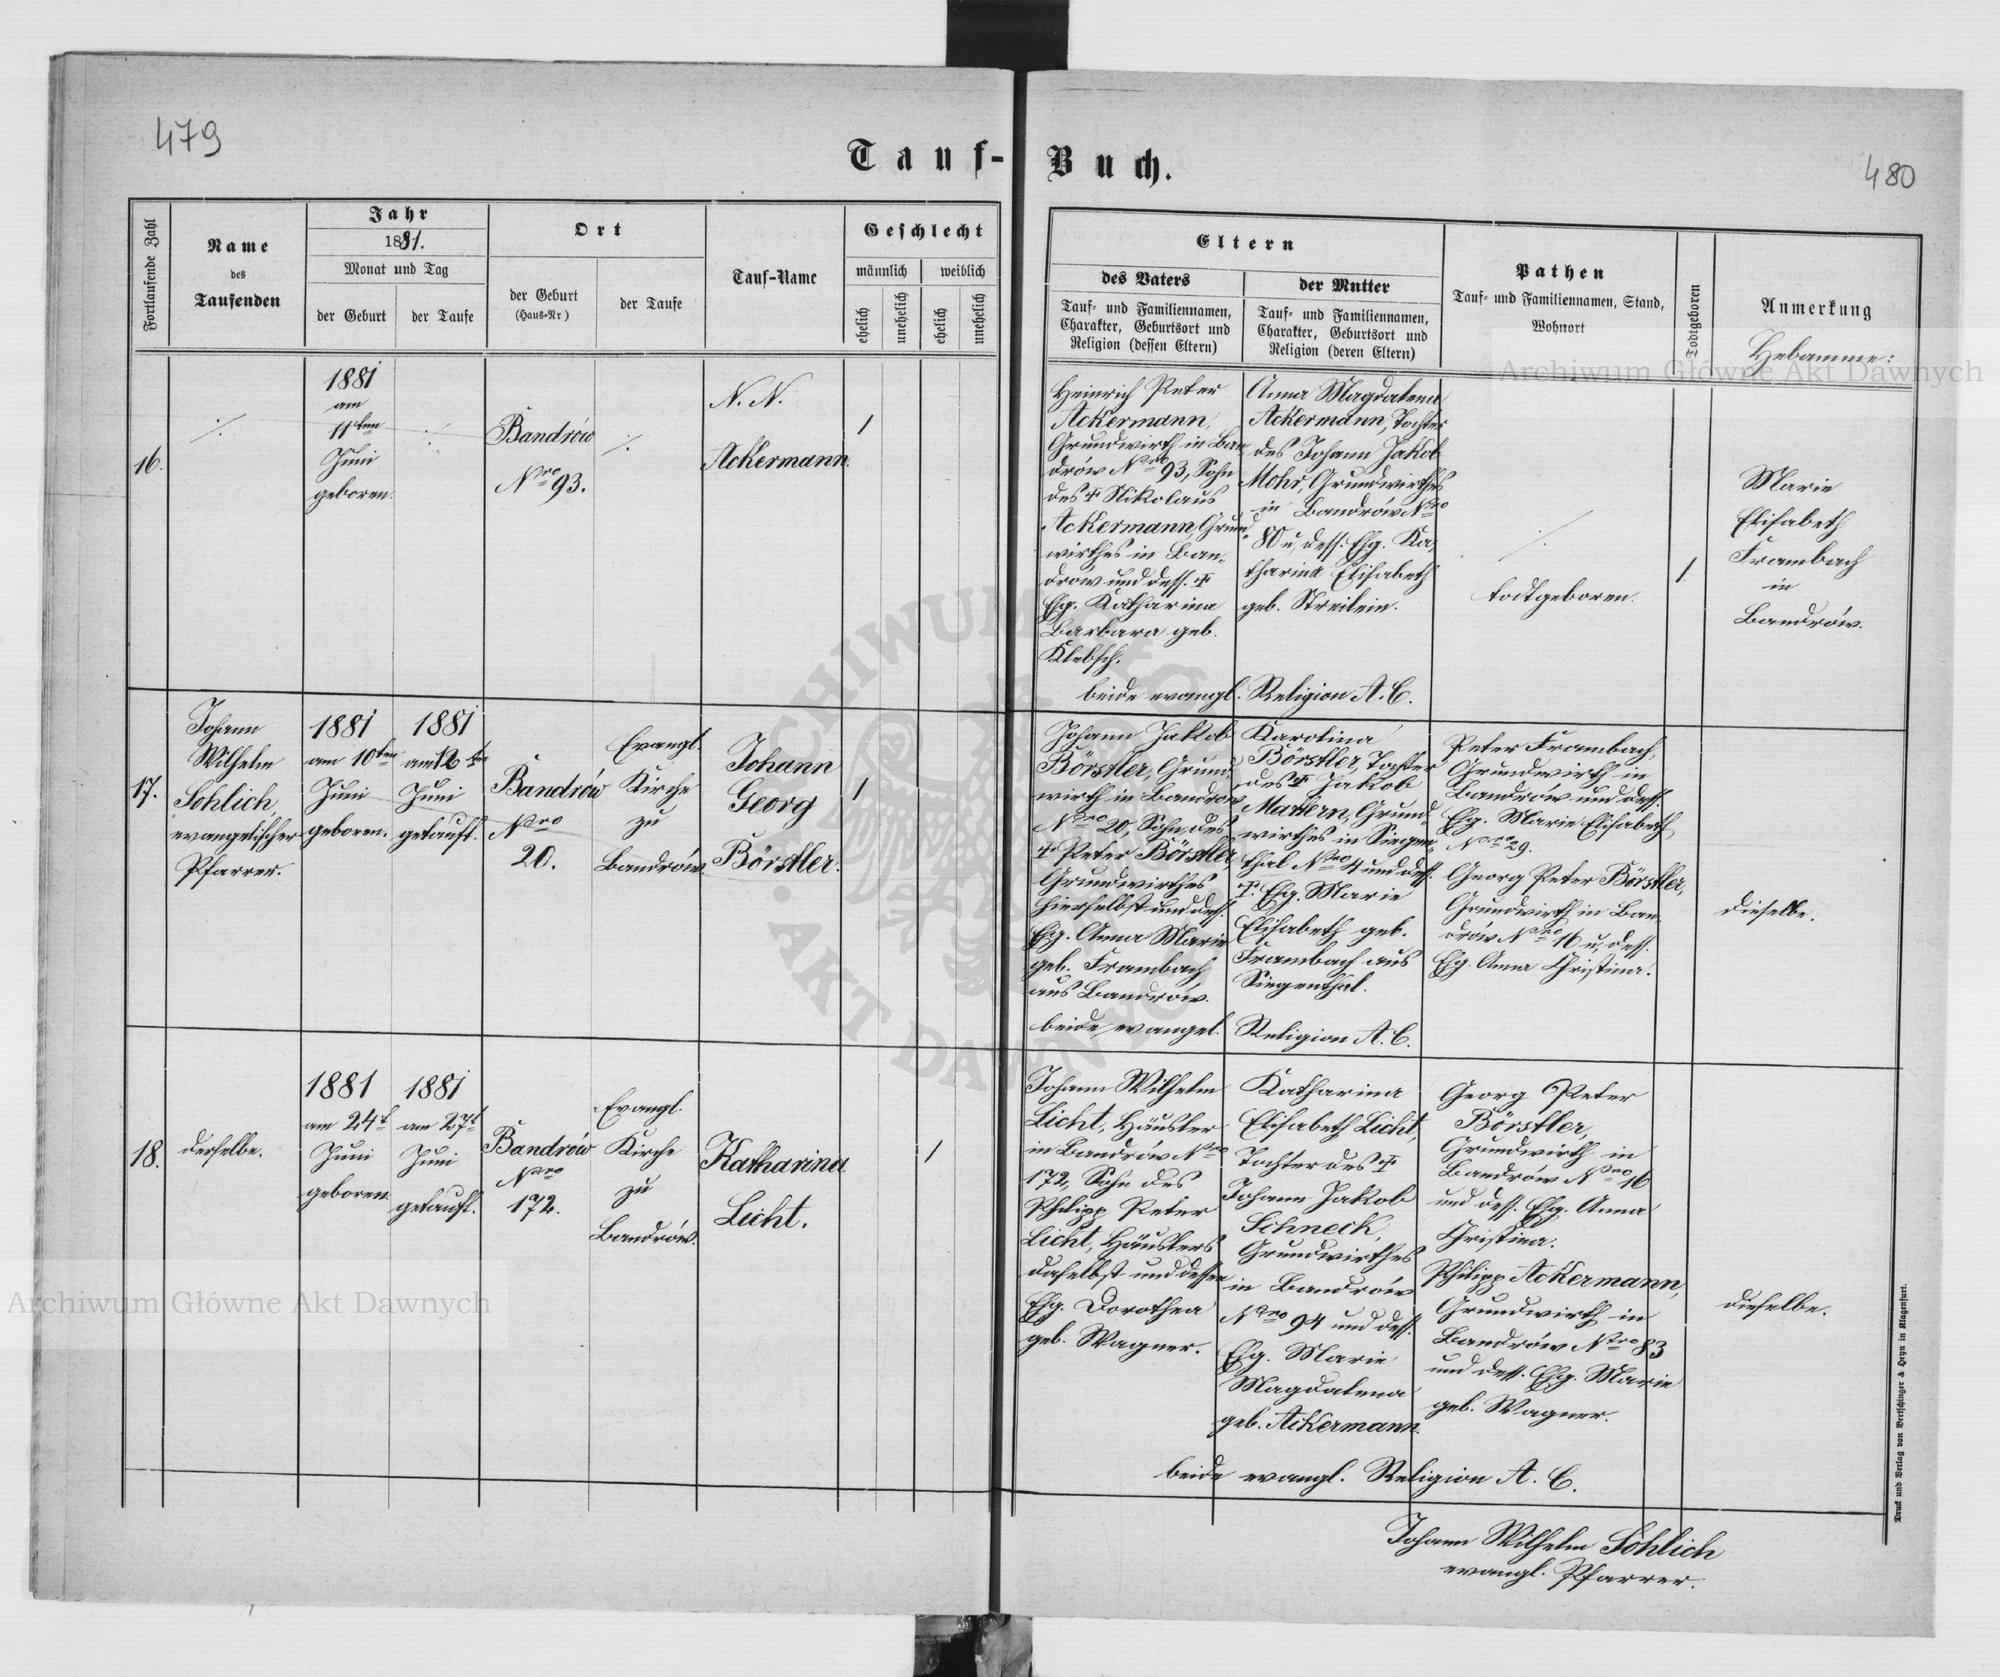 479
480
Tauf-Buch.
Fortlaufende Zahl
Name
des
Taufenden
Jahr
1881.
Monat und Tag
der Geburt
der Taufe
Ort
der Geburt
(Haus-Nr)
der Taufe
Tauf-Name
Geschlecht
männlich
weiblich
ehelich
unehelich
ehelich
unehelich
Eltern
des Vaters
Tauf- und Familiennamen,
Charakter, Geburtsort und
Religion (dessen Eltern)
der Mutter
Tauf- und Familiennamen,
Charakter, Geburtsort und
Religion (deren Eltern)
Pathen
Tauf- und Familiennamen, Stand,
Wohnort
Todtgeboren
Anmerkung
Hebamme:
16.
./.
1881
am
11ten
Juni
geboren.
./.
Bandrów
Nro 93.
./.
N. N.
Ackermann.
1
Heinrich Peter
Ackermann,
Grundwirth in Ban
drów Nro 93, Sohn
des † Nikolaus
Ackermann, Grund
wirthes in Ban-
drow und dess. †
Ehg. Katharina
Barbara geb.
Klebsch.
Anna Magdalena
Ackermann, Tochter
des Johann Jakob
Mohr, Grundwirthes
in Bandrów Nro
80 u. dess. Ehg. Ka-
tharina Elisabeth
geb. Streilein.
beide evangl. Religion A. C.
./.
todtgeboren.
1
Marie
Elisabeth
Frambach
in
Bandrów.
17.
Johann
Wilhelm
Sohlich,
evangelischer
Pfarrer.
1881
am 10ten
Juni
geboren.
1881
am 12ten
Juni
getauft.
Bandrów
Nro
20.
Evangl.
Kirche
zu
Bandrów.
Johann
Georg
Börstler.
1
Johann Jakob
Börstler, Grund-
wirth in Bandrow
Nro 20, Sohn des
† Peter Börstler,
Grundwirthes
hierselbst und dess.
Ehg. Anna Marie
geb. Frambach
aus Bandrów.
Karolina
Börstler, Tochter
des † Jakob
Mattern, Grund
wirthes in Siegen-
thal Nro 4 und dess.
†. Ehg. Marie
Elisabeth geb.
Frambach aus
Siegenthal.
beide evangel. Religion A. C.
Peter Frambach,
Grundwirth in
Bandrów und dess.
Ehg. Marie Elisabeth
Nro 29.
Georg Peter Börstler,
Grundwirth in Ban-
drów Nro 16 u. dess.
Ehg. Anna Christina.
dieselbe.
18.
derselbe.
1881
am 24t
Juni
geboren
1881
am 27t
Juni
getauft.
Bandrów
Nro
172.
Evangl.
Kirche
zu
Bandrów.
Katharina
Licht.
1
Johann Wilhelm
Licht, Häusler
in Bandrów Nro
172, Sohn des
Philipp Peter
Licht, Häuslers
daselbst und dessen
Ehg. Dorothea
geb. Wagner.
Katharina
Elisabeth Licht,
Tochter des †
Johann Jakob
Schneck,
Grundwirthes
in Bandrów
Nro 94 und dess.
Ehg. Marie
Magdalena
geb. Ackermann.
beide evangl. Religion A. C.
Georg Peter
Börstler,
Grundwirth in
Bandrów Nro 16
und dess. Ehg. Anna
Christina.
Philipp Ackermann,
Grundwirth in
Bandrów Nro 83
und dess. Ehg. Marie
geb. Wagner.
dieselbe.
Johann Wilhelm Sohlich
evangl. Pfarrer.
Druck und Verlag von Bertschinger & Heyn in Klagenfurt.
Archiwum Główne Akt Dawnych
Archiwum Główne Akt Dawnych